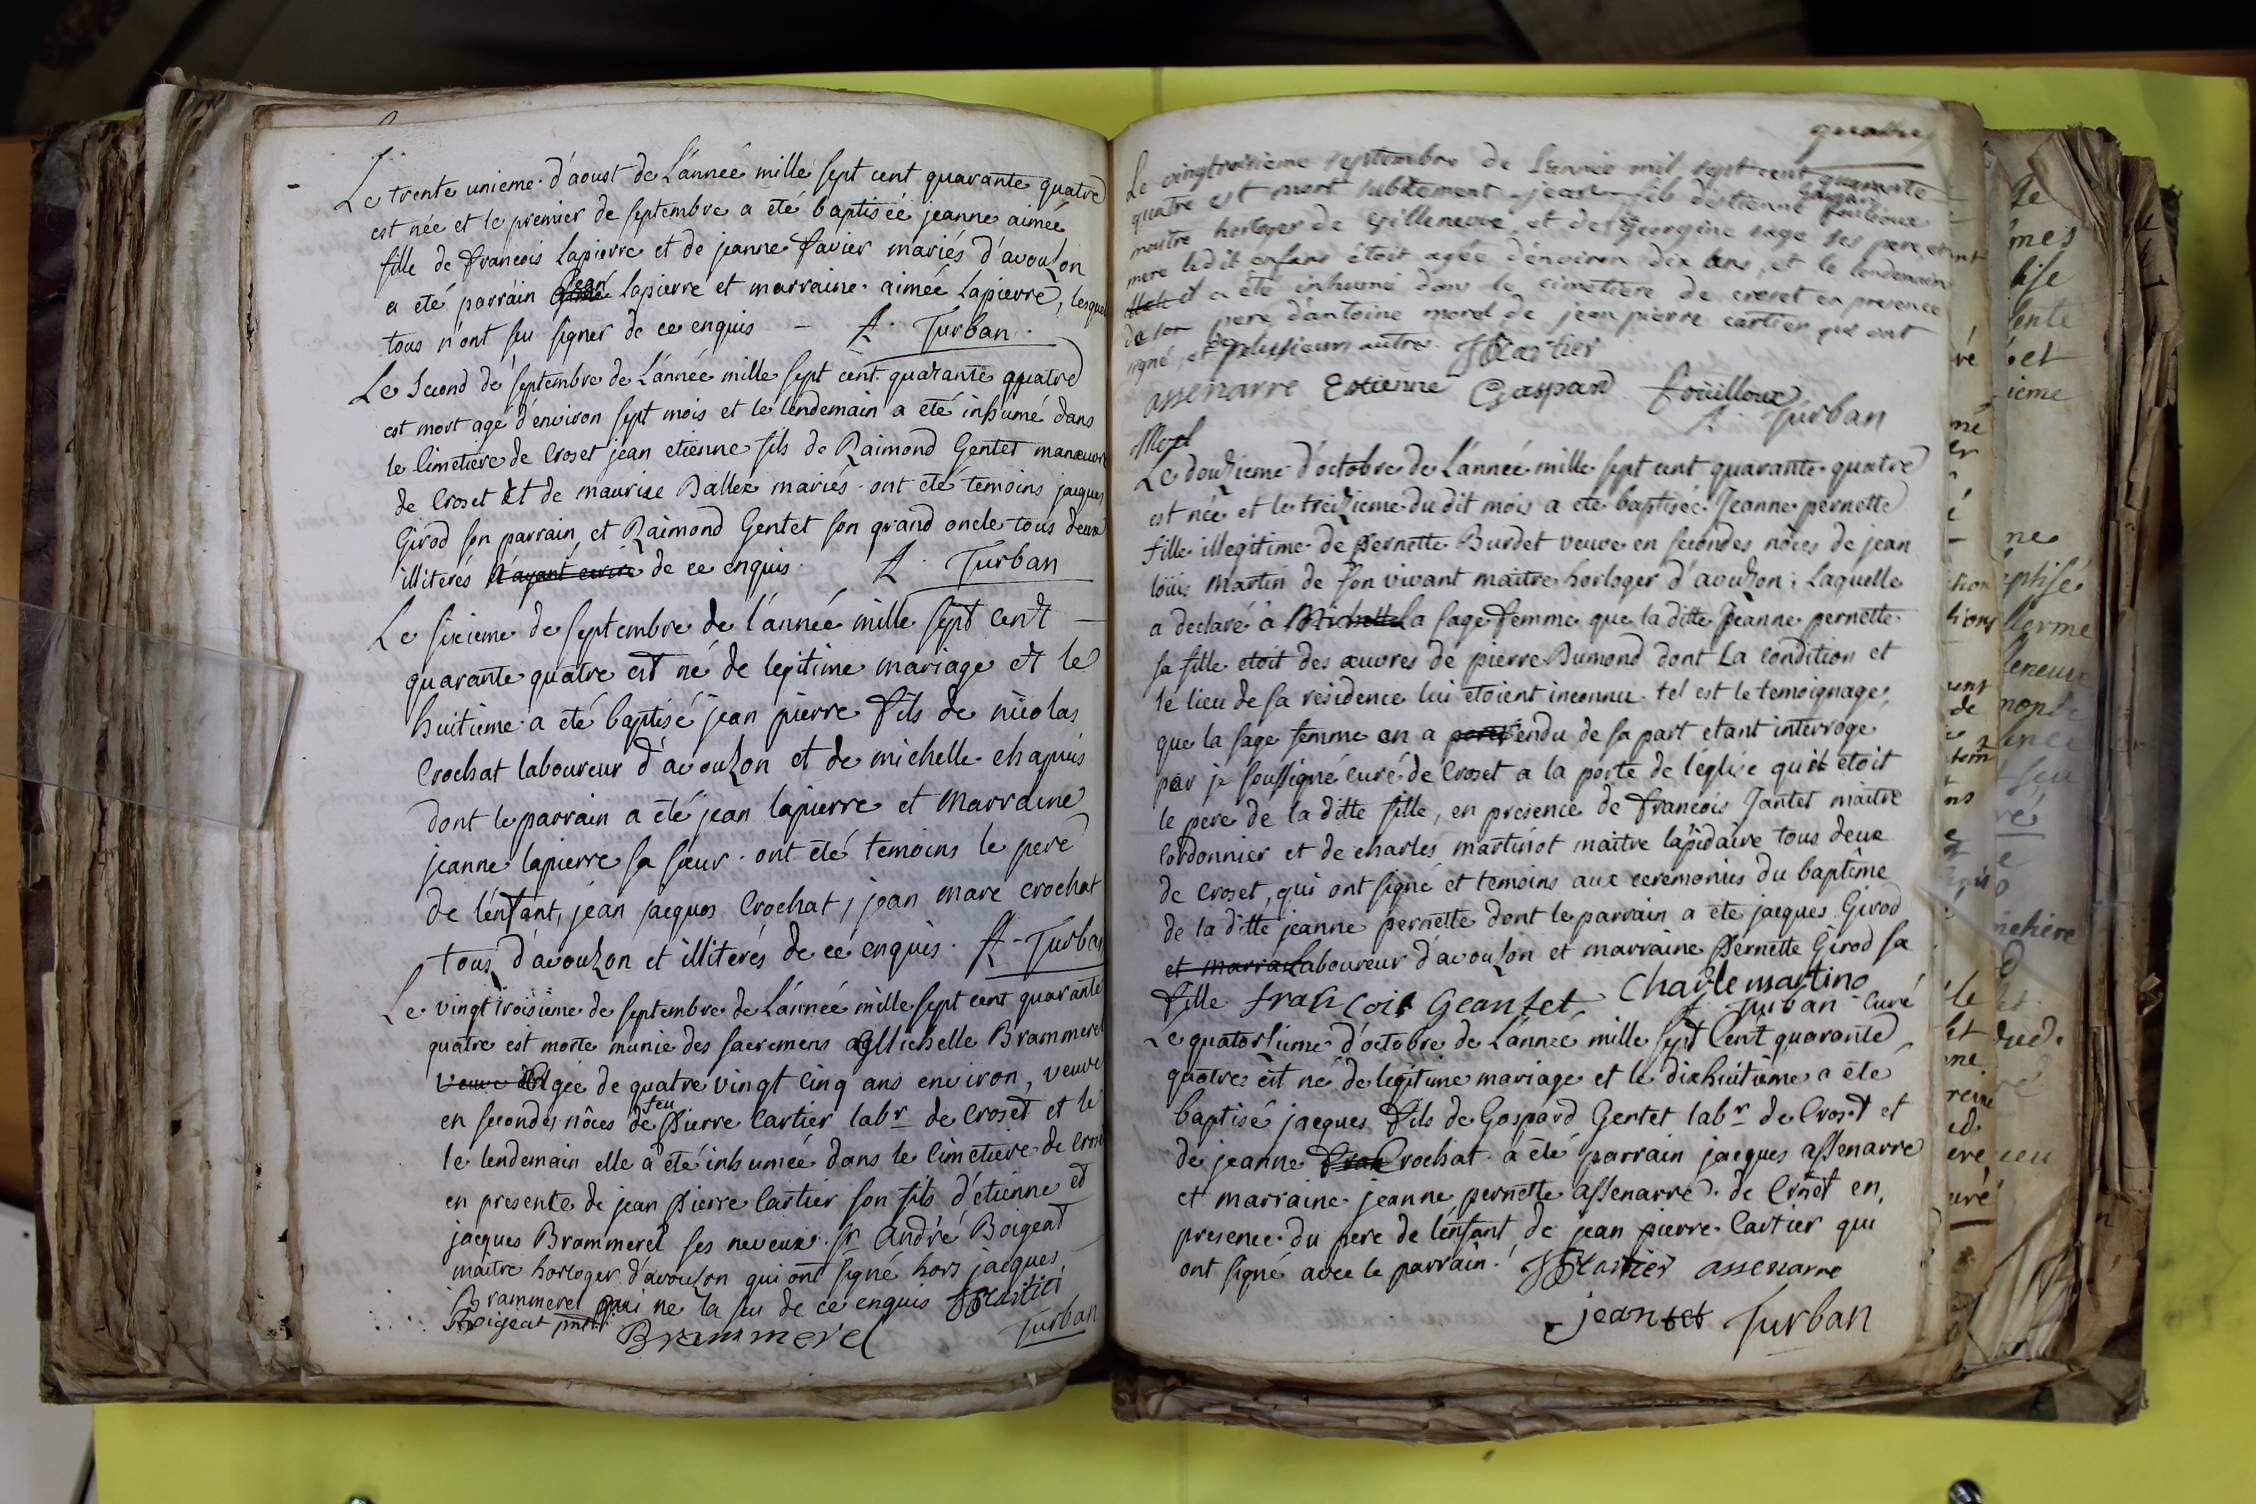 Le trente unieme d'aoust de L'année mille sept cent quarante quatre
est née et le premier de septembre a eté baptisée jeanne aimée
fille de francois Lapierre et de jeanne favier mariés d'avouzon
a eté parrain jean lapierre et marraine aimée Lapierre, lesquel
tous n'ont seu signer de ce enquis – A. Turban.
Le Second de septembre de L'année mille sept cent quarante quatre
est mort agé d'environ sept mois et le lendemain a eté inhumé dans
le Cimetiere de Croset jean etienne fils de Raimond Gentet manœuvre
de Croset et de maurise Ballex mariés ont eté temoins jacques
Girod son parrain et Raimond Gentet son grand oncle tous deux
illiterés de ce enquis. A. Turban
Le sixieme de septembre de l'année mille sept cent –
quarante quatre est né de legitime mariage et le
huitieme a eté baptisé jean pierre fils de nicolas
Crochat laboureur d'avouzon et de michelle chapuis
dont le parrain a eté jean lapierre et marraine
jeanne lapierre sa sœur. ont eté temoins le pere
de l'enfant, jean jacques Crochat, jean marc crochat
tous d'avouzon et illiterés de ce enquis. A. Turban
Le vingt troisieme de septembre de L'année mille sept cent quarante
quatre est morte munie des sacremens Michelle Brammerel
agée de quatre vingt cinq ans environ, veuve
en secondes nôces de feu Pierre Cartier labr de Croset et le
le lendemain elle a eté inhumée dans le Cimetiere de Croset
en presente de jean Pierre Cartier son fils d'etienne et
jacques Brammerel ses neveux. sr André Boigeat
maitre horloger d'avouzon qui ont signé hors jacques
Brammerel qui ne la seu de ce enquis JPCartier
Boigeat Brammerel Turban
quatre
Le vingtroisieme septembre de L'année mil sept cent quarante
quatre est mort subitement jean fils d'etienne Gaspar fouilloux
maitre horloger de Villeneuve, et de Georgine sage ses pere et
mere ledit enfant étoit agée d'environ dix ans, et le lendemain
il a été inhumé dans le cimetiere de croset en presence
de son pere d'antoine morel de jean pierre cartier qui ont
signé, et de plussieurs autres. JPCartier
assenarre Estienne Gaspard fouilloux
Morel A. Turban
Le douzieme d'octobre de L'année mille sept cent quarante quatre
est née et le treizieme du dit mois a eté baptisée Jeanne pernette
fille illegitime de Pernette Burdet veuve en secondes nôces de jean
loüis Martin de son vivant maitre horloger d'avouzon; Laquelle
a declaré à la sage femme que la ditte Jeanne pernette
sa fille etoit des œuvres de pierre Dumond dont La condition et
le lieu de sa residence lui etoient inconnu. tel est le temoignage
que la sage femme en a rendu de sa part etant interrogé
par je soussigné curé de Croset a la porte de l'eglise qu'il etoit
le pere de la ditte fille, en presence de francois Jantet maitre
Cordonnier et de charles martinot maitre lapidaire tous deux
de Croset, qui ont signé et temoins aux ceremonies du baptême
de la ditte jeanne pernette dont le parrain a eté jacques Girod
et marrai Laboureur d'avouzon et marraine Pernette Girod sa
fille francois Geantet Charle martino
A Turban Curé
Le quatorzieme d'octobre de L'année mille sept Cent quarante
quatre est né de legitime mariage et le dixhuitieme a eté
baptisé jacques fils de Gaspard Gentet labr de Croset et
de jeanne Crochat. a eté parrain jacques assenarre
et marraine jeanne pernette assenarre de Croset en
presence du pere de l'enfant de jean pierre Cartier qui
ont signé avec le parrain. JPCartier assenarre
jeantet Turban